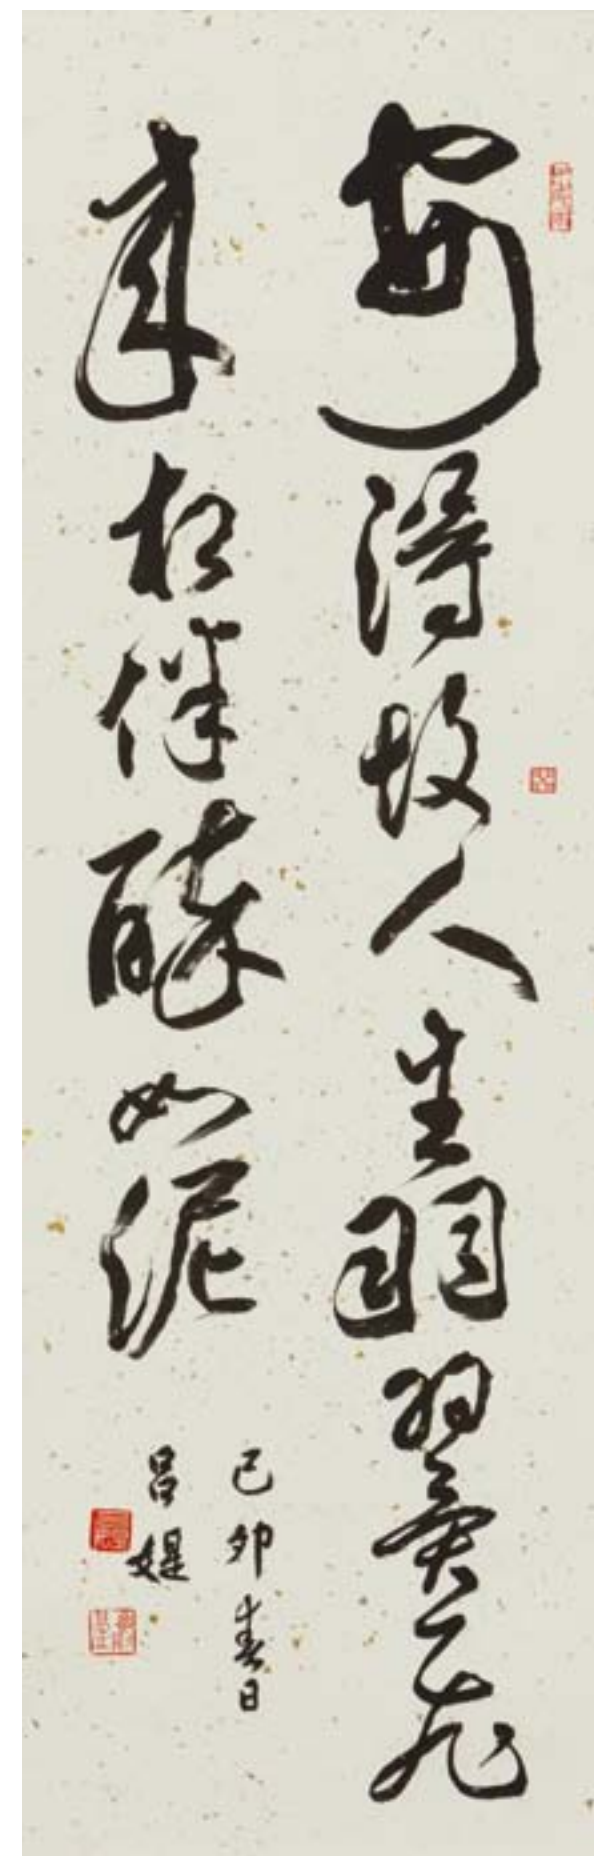 安得故人生羽翼飛
來相伴醉如泥
己卯春日
吕媞